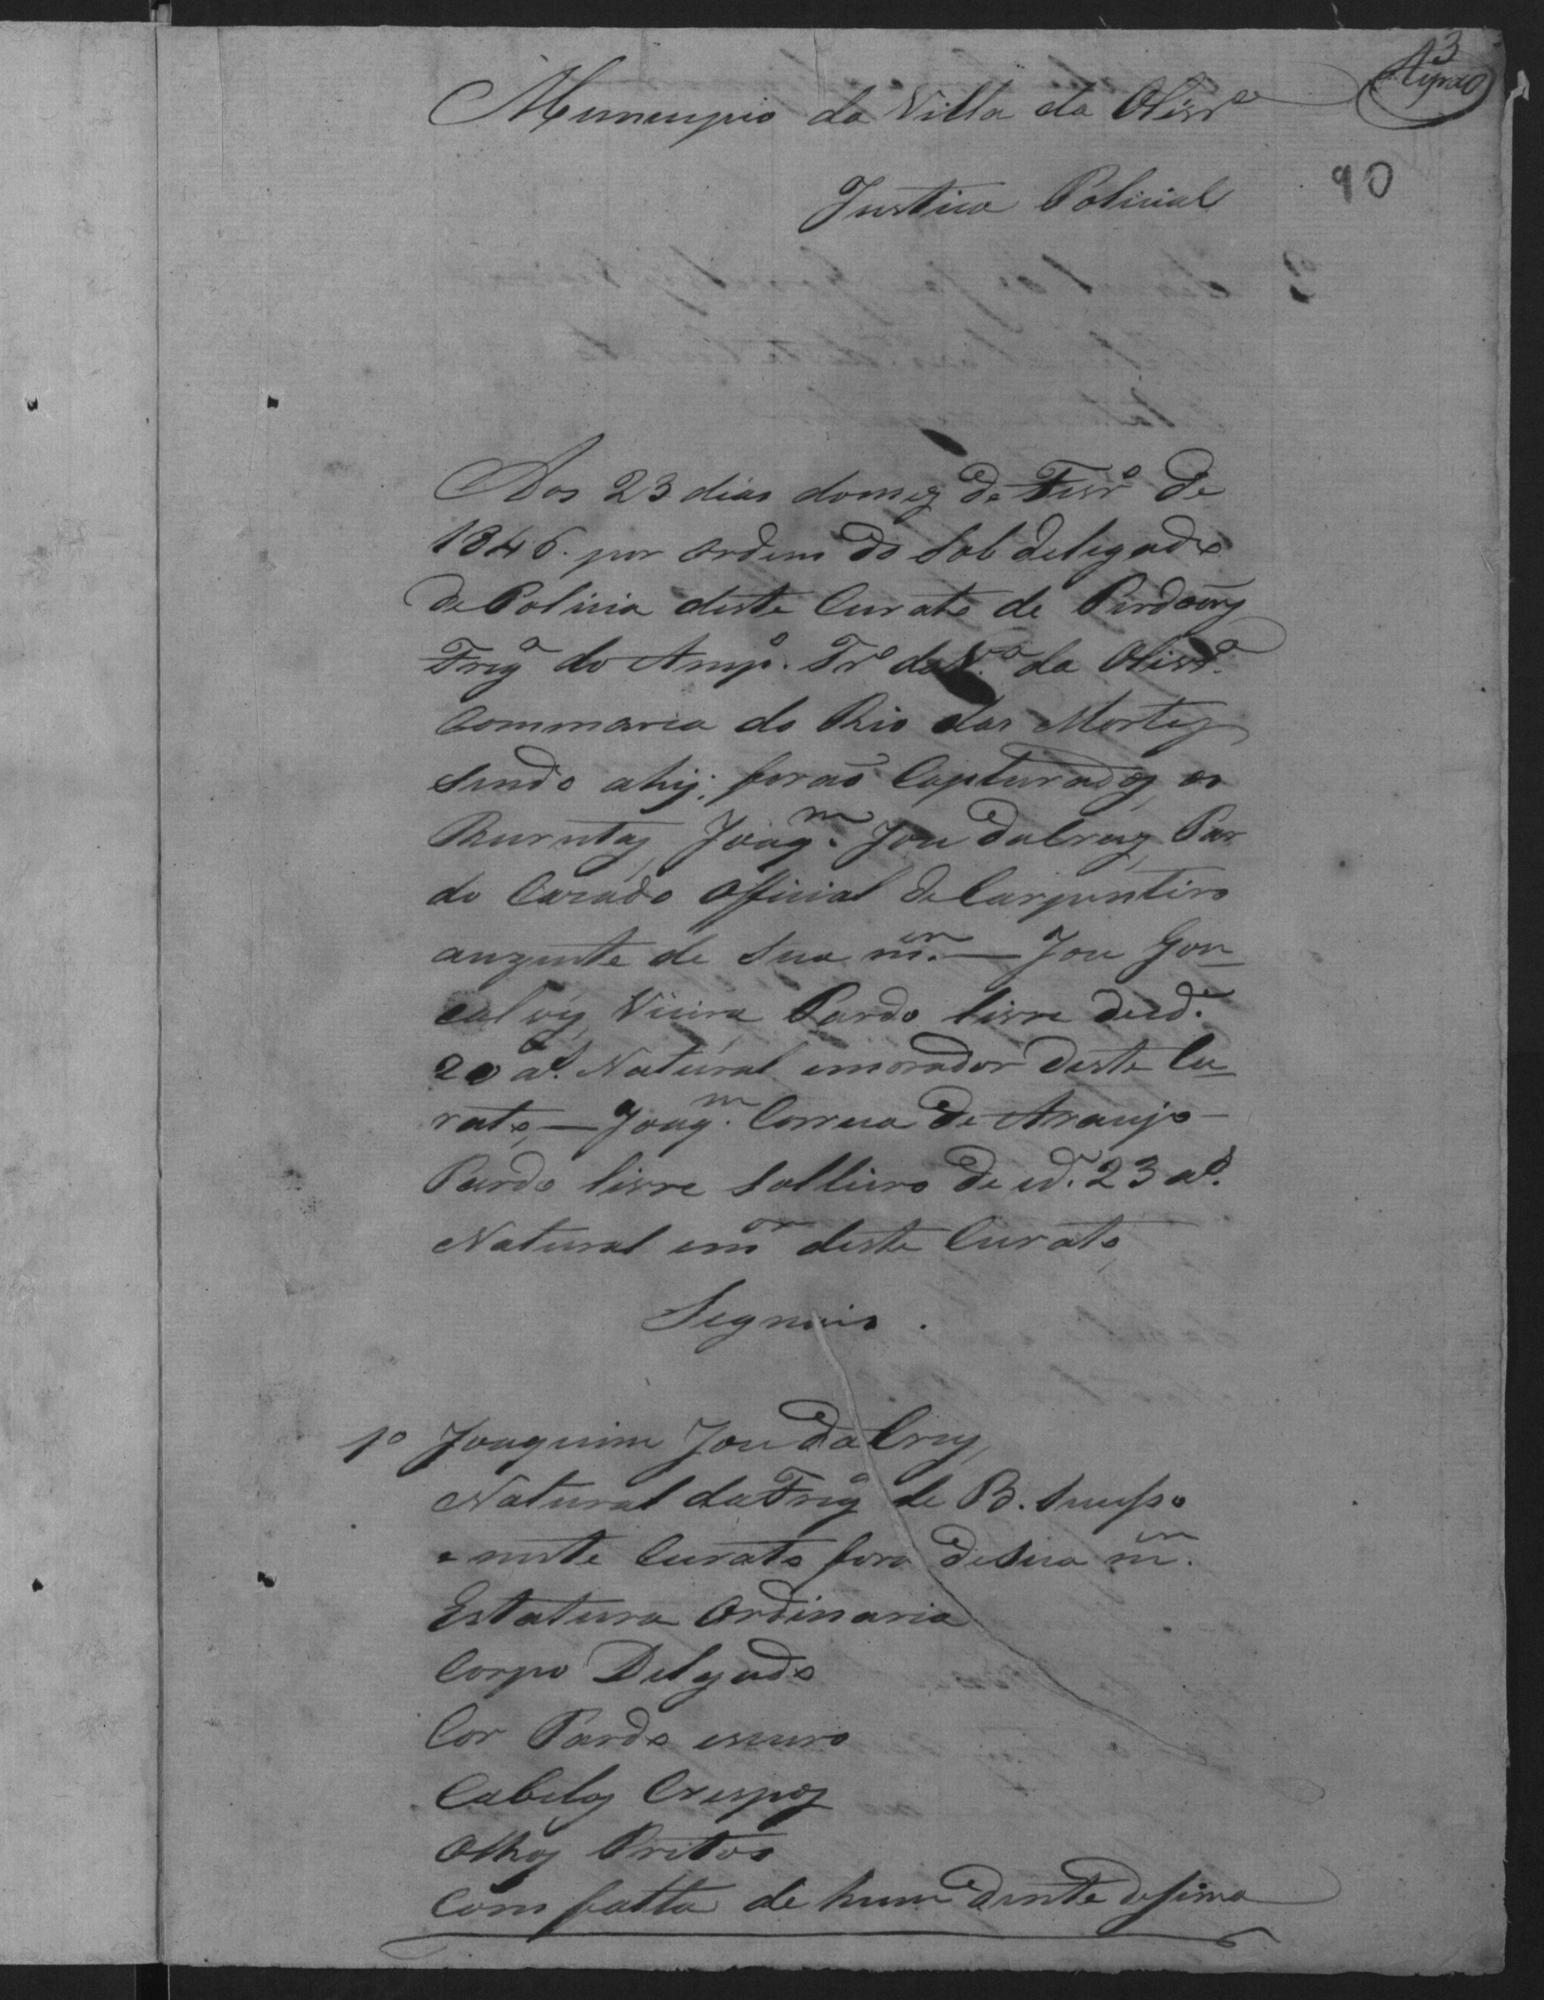 3
90
Municipio da Villa da Olivrª
Justica Policial
Aos 23 dias domez de Fevrº de
1846. por ordem do Sob delegado
de Policia deste Curato de Perdoẽns
Fregª do Ampº. Trº da Vª. da Olivrª.
Commarca do Rio das Mortes
sendo ahy; forão Capturados os
Recrutas, Joaqm. Joze da Cruz, Par
do Cazado Official de Carpenteiro
auzente de sua mer. — Joze Gon
calves Vieira Pardo livre de id.e
20 as. Natural emorador deste Cu
rato, — Joaqm. Correa de Araujo —
Pardo livre solteiro de id.e 23 as.
Natural emor deste Curato
Segnais.
1º Joaquim Joze da Cruz,
Natural da Fregª de B. Sucesso
e neste Curato fora de sua mer.
Estatura Ordinaria
Corpo Delgado
Cor Pardo escuro
Cabelos Crespos
Olhos Pretos
Com falta de hum dente desima